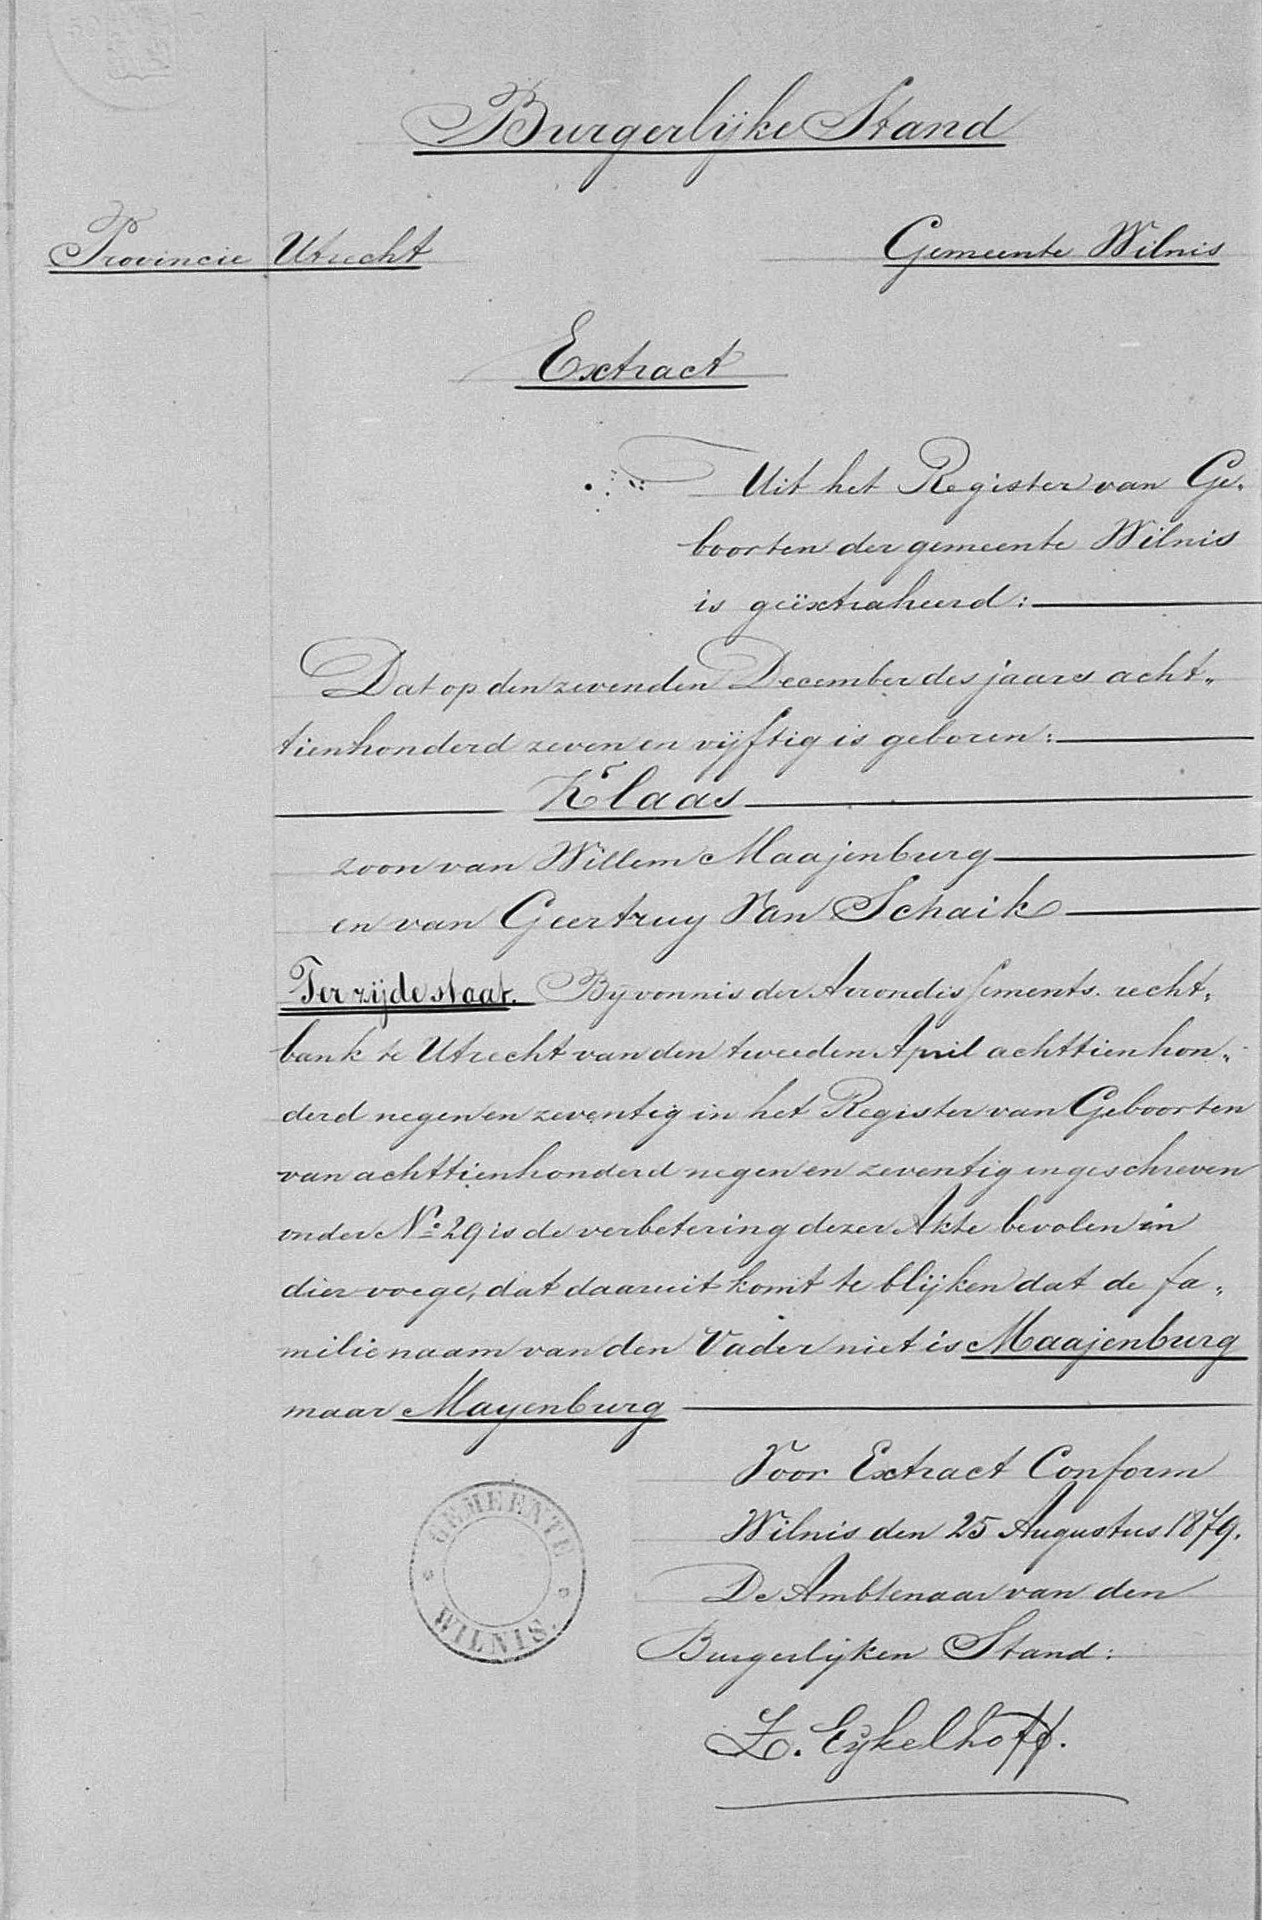 Burgerlijke Stand
Provincie Utrecht
Gemeente Wilnis
Extract
Uit het Register van Ge„
boorten der gemeente Wilnis
is geïxtraheerd:
Dat op den zevenden December des jaars acht„
tienhonderd zeven en vijftig is geboren:
Klaas
zoon van Willem Maajenburg
en van Geertruy Van Schaik
Ter zijde staat. Bij vonnis der Arrondissements recht„
bank te Utrecht van den tweeden April achttien hon„
derd negen en zeventig in het Register van Geboorten
van achttienhonderd negen en zeventig ingeschreven
onder No 29 is de verbetering dezer Akte bevolen in
dier voege, dat daaruit komt te blijken dat de fa„
milienaam van den Vader niet is Maajenburg
maar Mayenburg
Voor Extract Conform
Wilnis den 25 Augustus 1879.
De Ambtenaar van den
Burgerlijken Stand:
GEMEENTE
WILNIS.
Z. Eykelhoff.